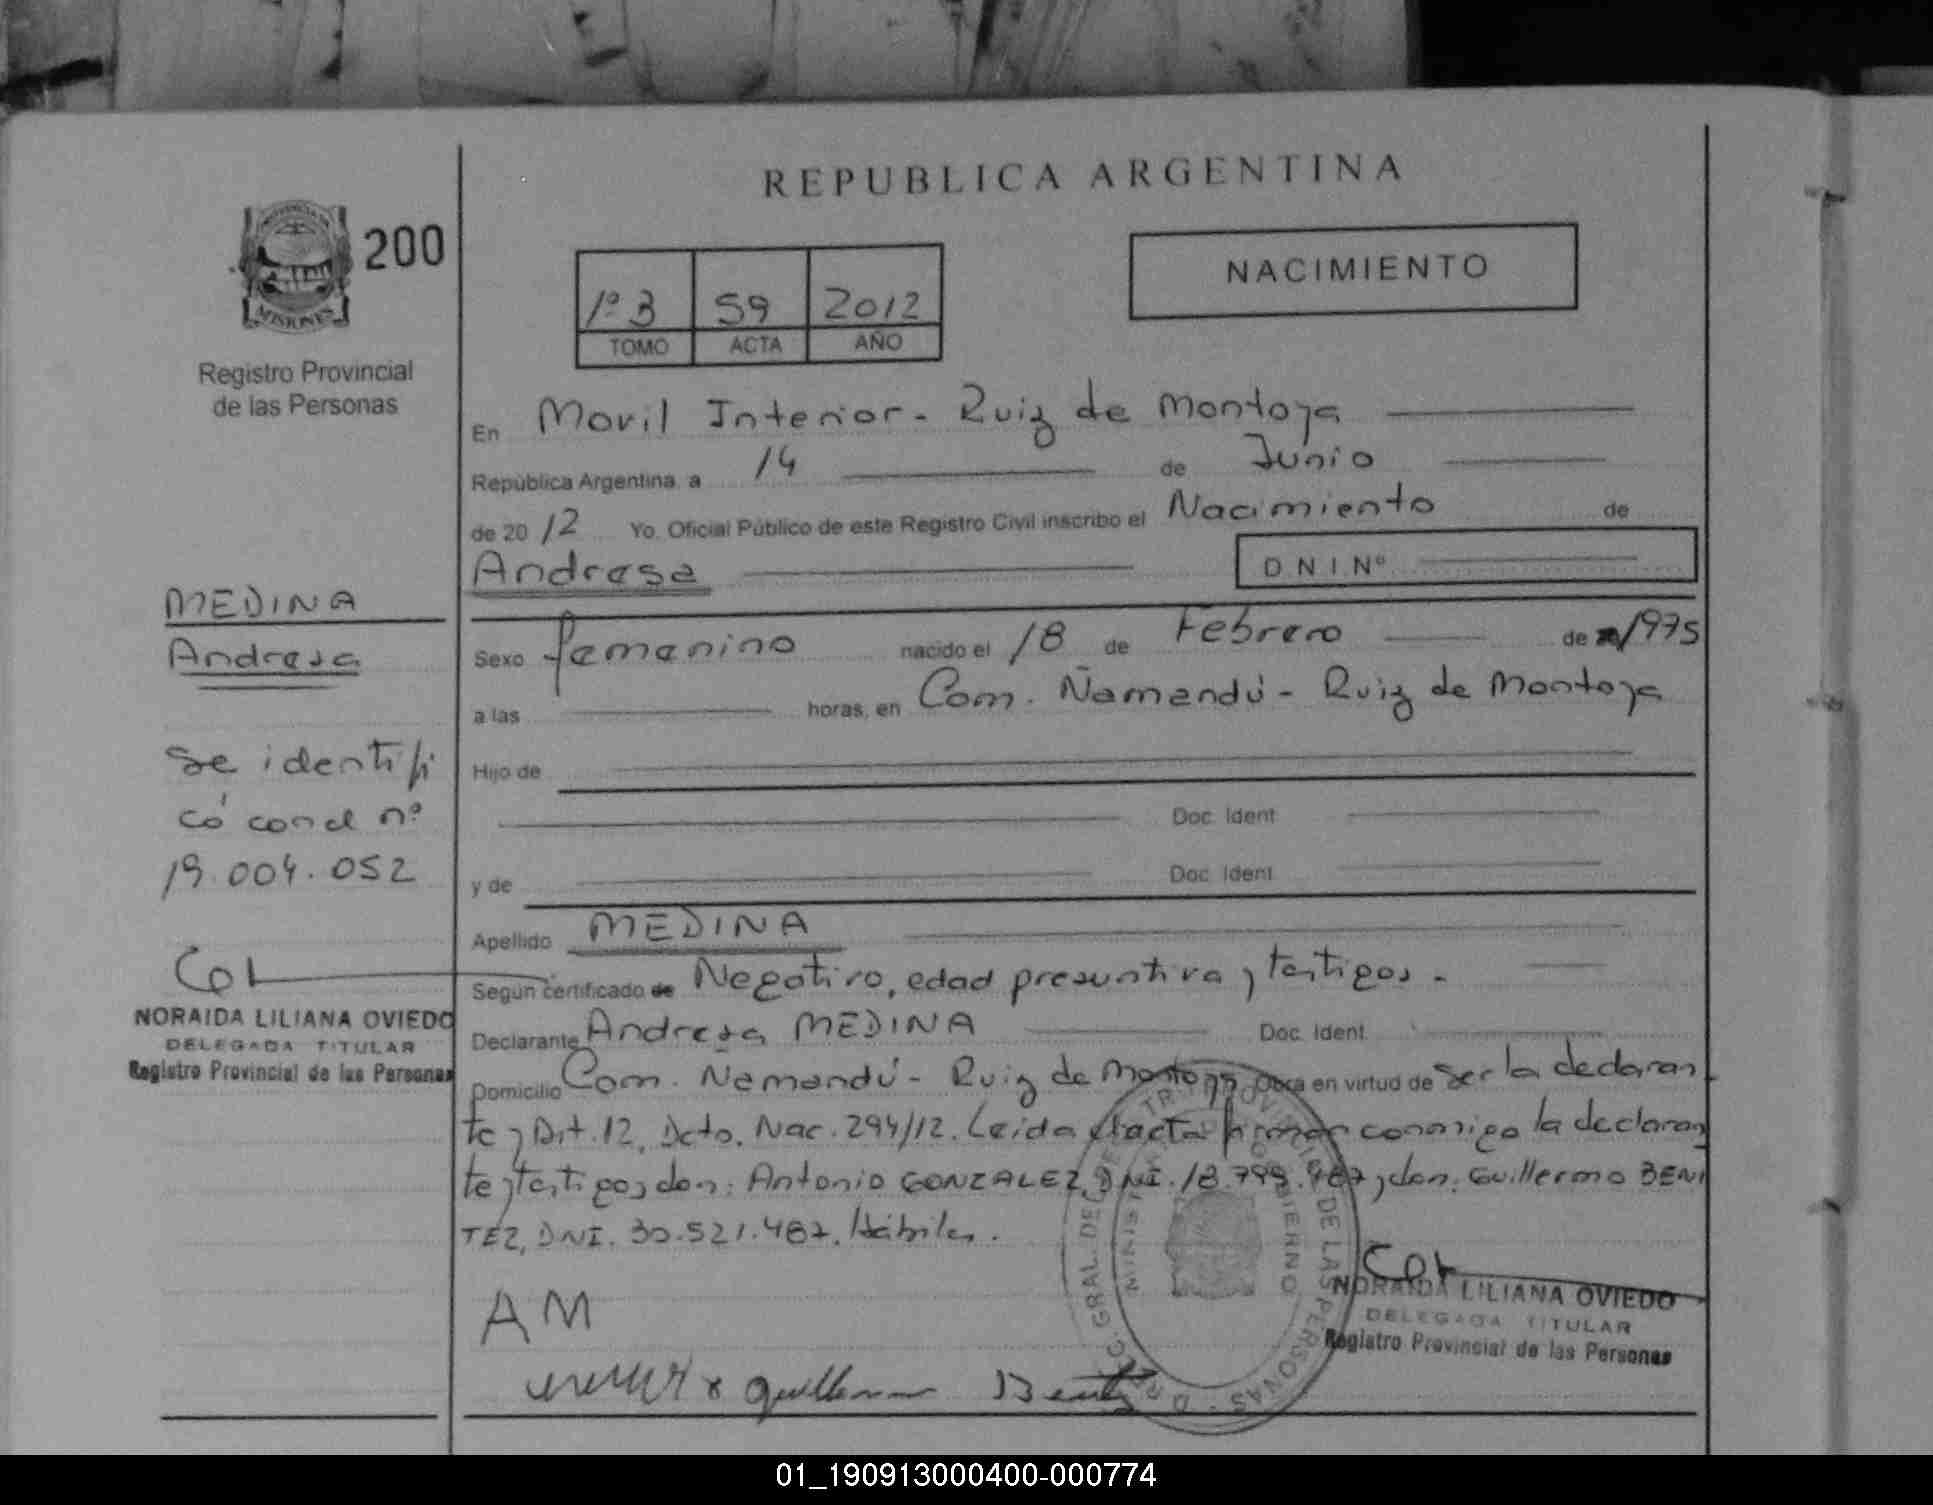 REPUBLICA ARGENTINA
PROVINCIA DE
MISIONES
200
Registro Provincial
de las Personas
1º 3 59 2012
TOMO ACTA AÑO
NACIMIENTO
En Movil Interior - Ruiz de Montoya
República Argentina, a 14 de Junio
de 2012 Yo, Oficial Público de este Registro Civil inscribo el Nacimiento de
Andresa D.N.I. Nº
Sexo femenino nacido el 18 de Febrero de 1975
a las horas, en Com. Ñamandú - Ruiz de Montoya
Hijo de
Doc. Ident
y de Doc. Ident
Apellido MEDINA
Según certificado de Negativo, edad presuntiva y testigos.
Declarante Andresa MEDINA Doc. Ident.
Domicilio Com. Ñamandú - Ruiz de Montoya Obra en virtud de ser la declaran
te y Art. 12, Dcto. Nac. 294/12. Leida el acta firman conmigo la declaran
te y testigos don: Antonio GONZALEZ, DNI. 18.799.  y don: Guillermo BENI
TEZ, DNI. 30.521.487. Hábiles.
AM
Guillermo Benitez
MEDINA
Andresa
Se identifi
có con el nº
19.004.052
NORAIDA LILIANA OVIEDO
DELEGADA TITULAR
Registro Provincial de las Personas
NORAIDA LILIANA OVIEDO
DELEGADA TITULAR
Registro Provincial de las Personas
01_190913000400-000774